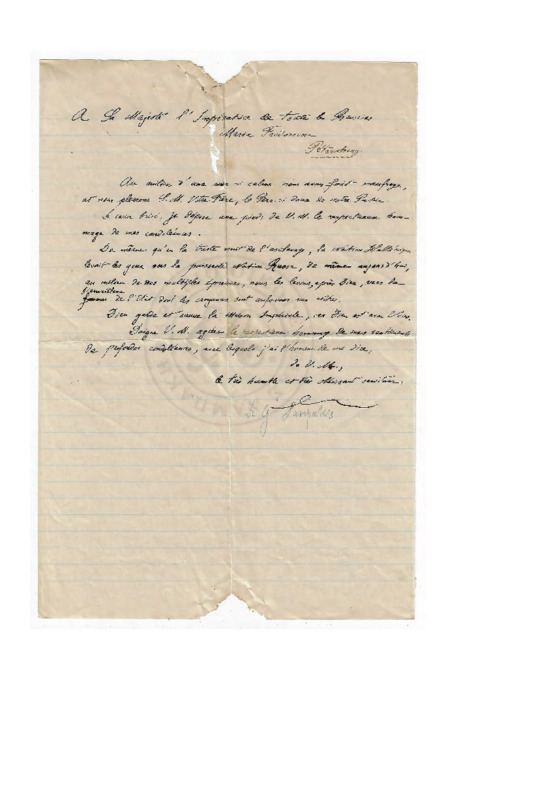 A Sa Majesté l'Impératrice de toutes les Russies
Marie Féodorovna
Pétersbourg
Au milieu d'une mer si calme nous avons fait naufrage,
et nous pleurons S. M. Votre Frère, le Père si doux de notre Patrie
Le cœur brisé, je dépose aux pieds de V. M. le respectueux hom-
mage de mes condoléances.
De même qu'en la triste nuit de l'esclavage, la nation Hellénique
levait les yeux vers la puissante nation Russe, de même aujourd'hui,
au milieu de nos multiples épreuves, nous les levons, après Dieu, vers
de l'Etat dont les
Dieu garde et sauve la Maison Impériale, car Dieu est avec Vous.
Daigne V. M. agréer le respectueux hommage de mes sentiments
de profondes condoléances, avec lesquels j'ai l'honneur de me dire,
de V. M.,
le très humble et très obéissant serviteur.
Dr G.